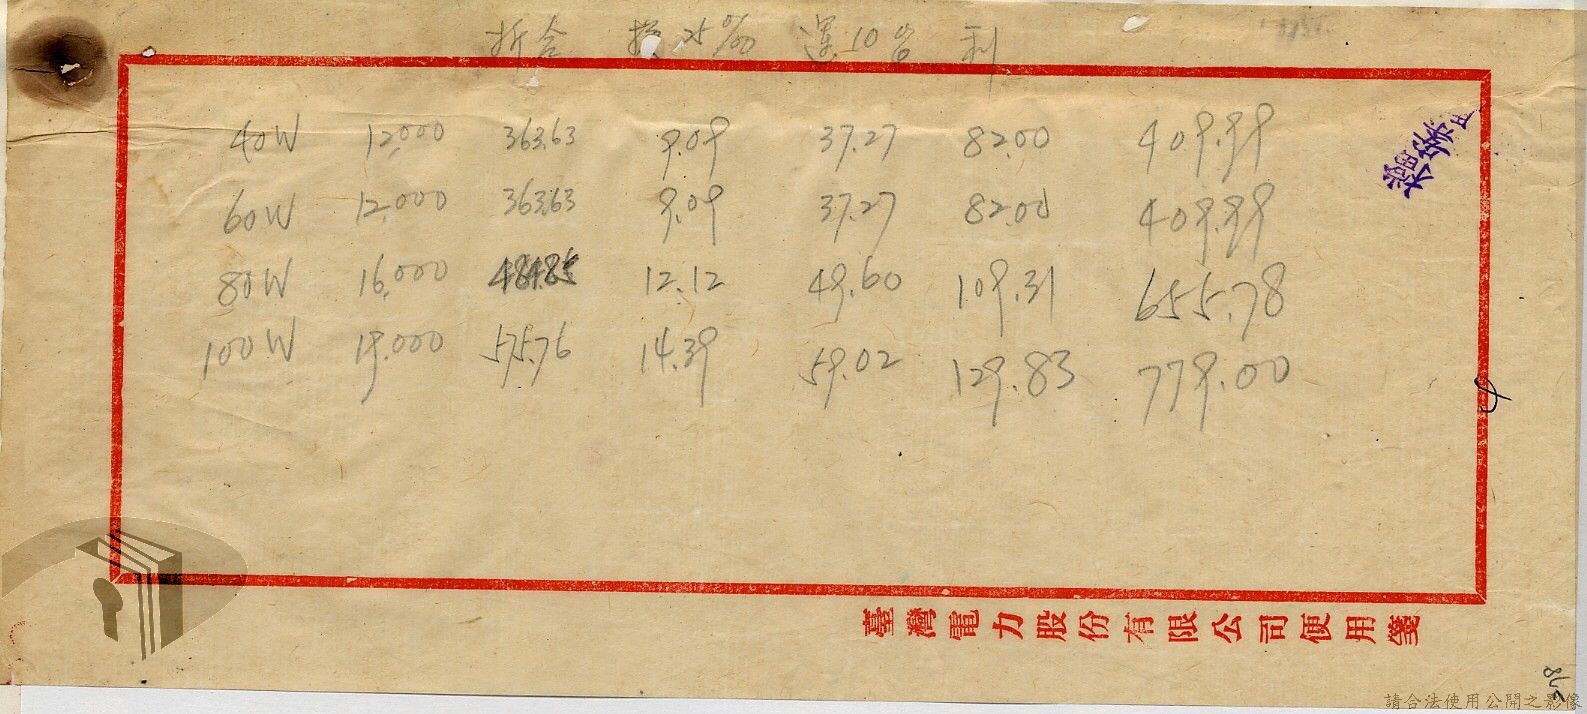 折合 損 2.5% 運10% 利
40W 12,000 363.63 9.09 37.27 82.00 409.99
60W 12,000 363.63 9.09 37.27 82.00 409.99
80W 16,000 484.85 12.12 49.60 109.31 655.78
100W 19,000 575.76 14.39 59.02 129.83 779.00
臺灣電力股份有限公司便用箋
請合法使用公開之影像